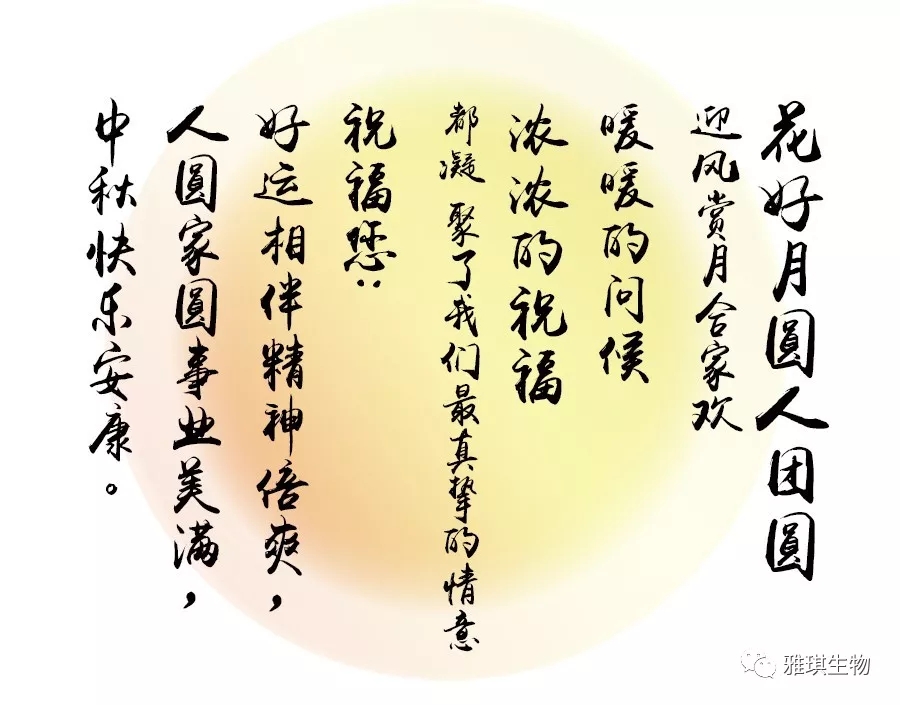 花好月圆人团圆
迎风赏月合家欢
暖暖的问候
浓浓的祝福
都凝聚了我们最真挚的情意
祝福您:
好运相伴精神倍爽,
人圆家圆事业美满,
中秋快乐安康。
雅琪生物